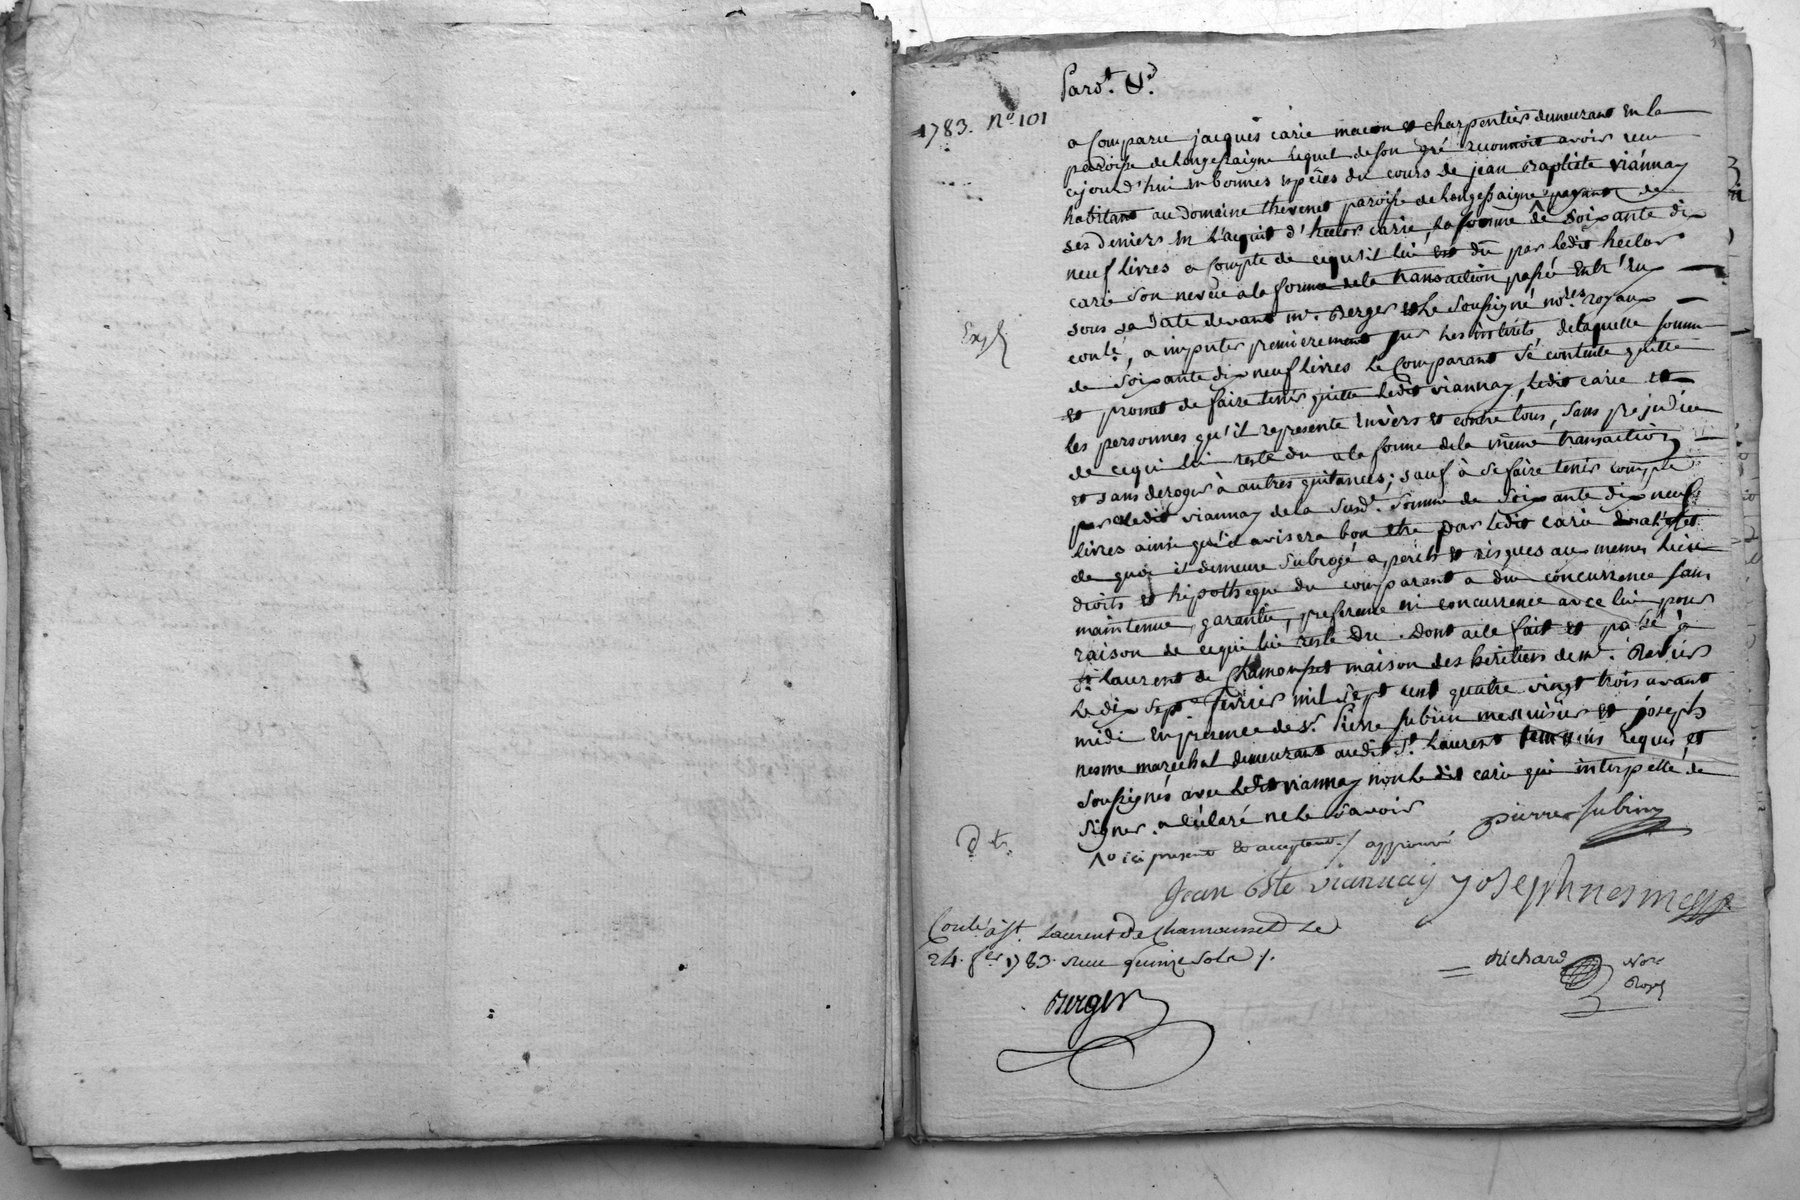 Pard.t &.d
1783. N.o 101
a Comparu jacques carie macon et charpentier demeurant en la
paroisse de longessaigne lequel de son gré reconnoit avoir reçu
cejourd'hui en bonnes espèces du cours de jean Baptiste viannay
habitant au domaine thevenet paroisse de longessaigne payant de
ses deniers en l'acquit d'hector carie, la somme de soixante dix
neuf livres a compte de ce qu'il lui est dû par ledit hector
carie son neveu a la forme de la transaction passée entr'eux
sous sa date devant m.e Berger et le soussigné no.res royaux
Exp.é
contlé, a imputer premierement sur les intérêts de laquelle somme
de soixante dix neuf livres le Comparant se contente quitte
et promet de faire tenir quitte ledit viannay, ledit carie et
les personnes qu'il represente envers et contre tous, sans prejudice
de ce qui lui reste du a la forme de la même transaction
et sans deroger à autres quitances; sauf à se faire tenir compte
par ledit viannay de la susd.e somme de soixante dix neuf
livres ainsi qu'il avisera bon etre par ledit carie a l'effet
de quoi il demeure subrogé a périls et risques aux memes lieu
droits et hipotheque du comparant a due concurrence sans
maintenue, garantie, preference ni concurrence avec lui pour
raison de ce qui lui reste du. Dont acte fait et passé à
st laurent de Chamousset maison des héritiers de m.e
le dix sept fevrier mil sept cent quatre vingt trois avant
midi en presence de s.r Pierre subrin menuisier et joseph
nesme marechal demeurant audit s.t laurent temoins requis et
soussignés avec ledit viannay non ledit carie qui interpellé de
signer a déclaré ne le savoir
pierre subrin
ici present et acceptant / approuvé
Jean bte viannay joseph nesme
Contlé à st. laurent de chamousset le
24. fer 1783. reçu quinze sols /.
Richard
No.re
Roy.l
Berger